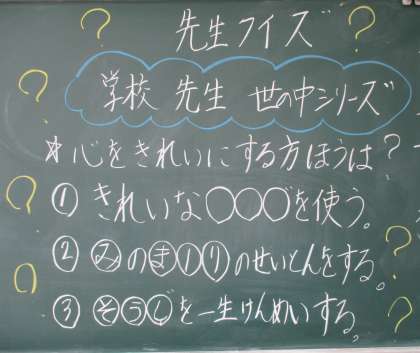 先生クイズ
学校 先生 世の中シリーズ
*心をきれいにする方ほうは?
①きれいな○○○゛を使う。
②みのまわりのせいとんをする。
③そうじを一生けんめいする。
? ? ? ? ? ?